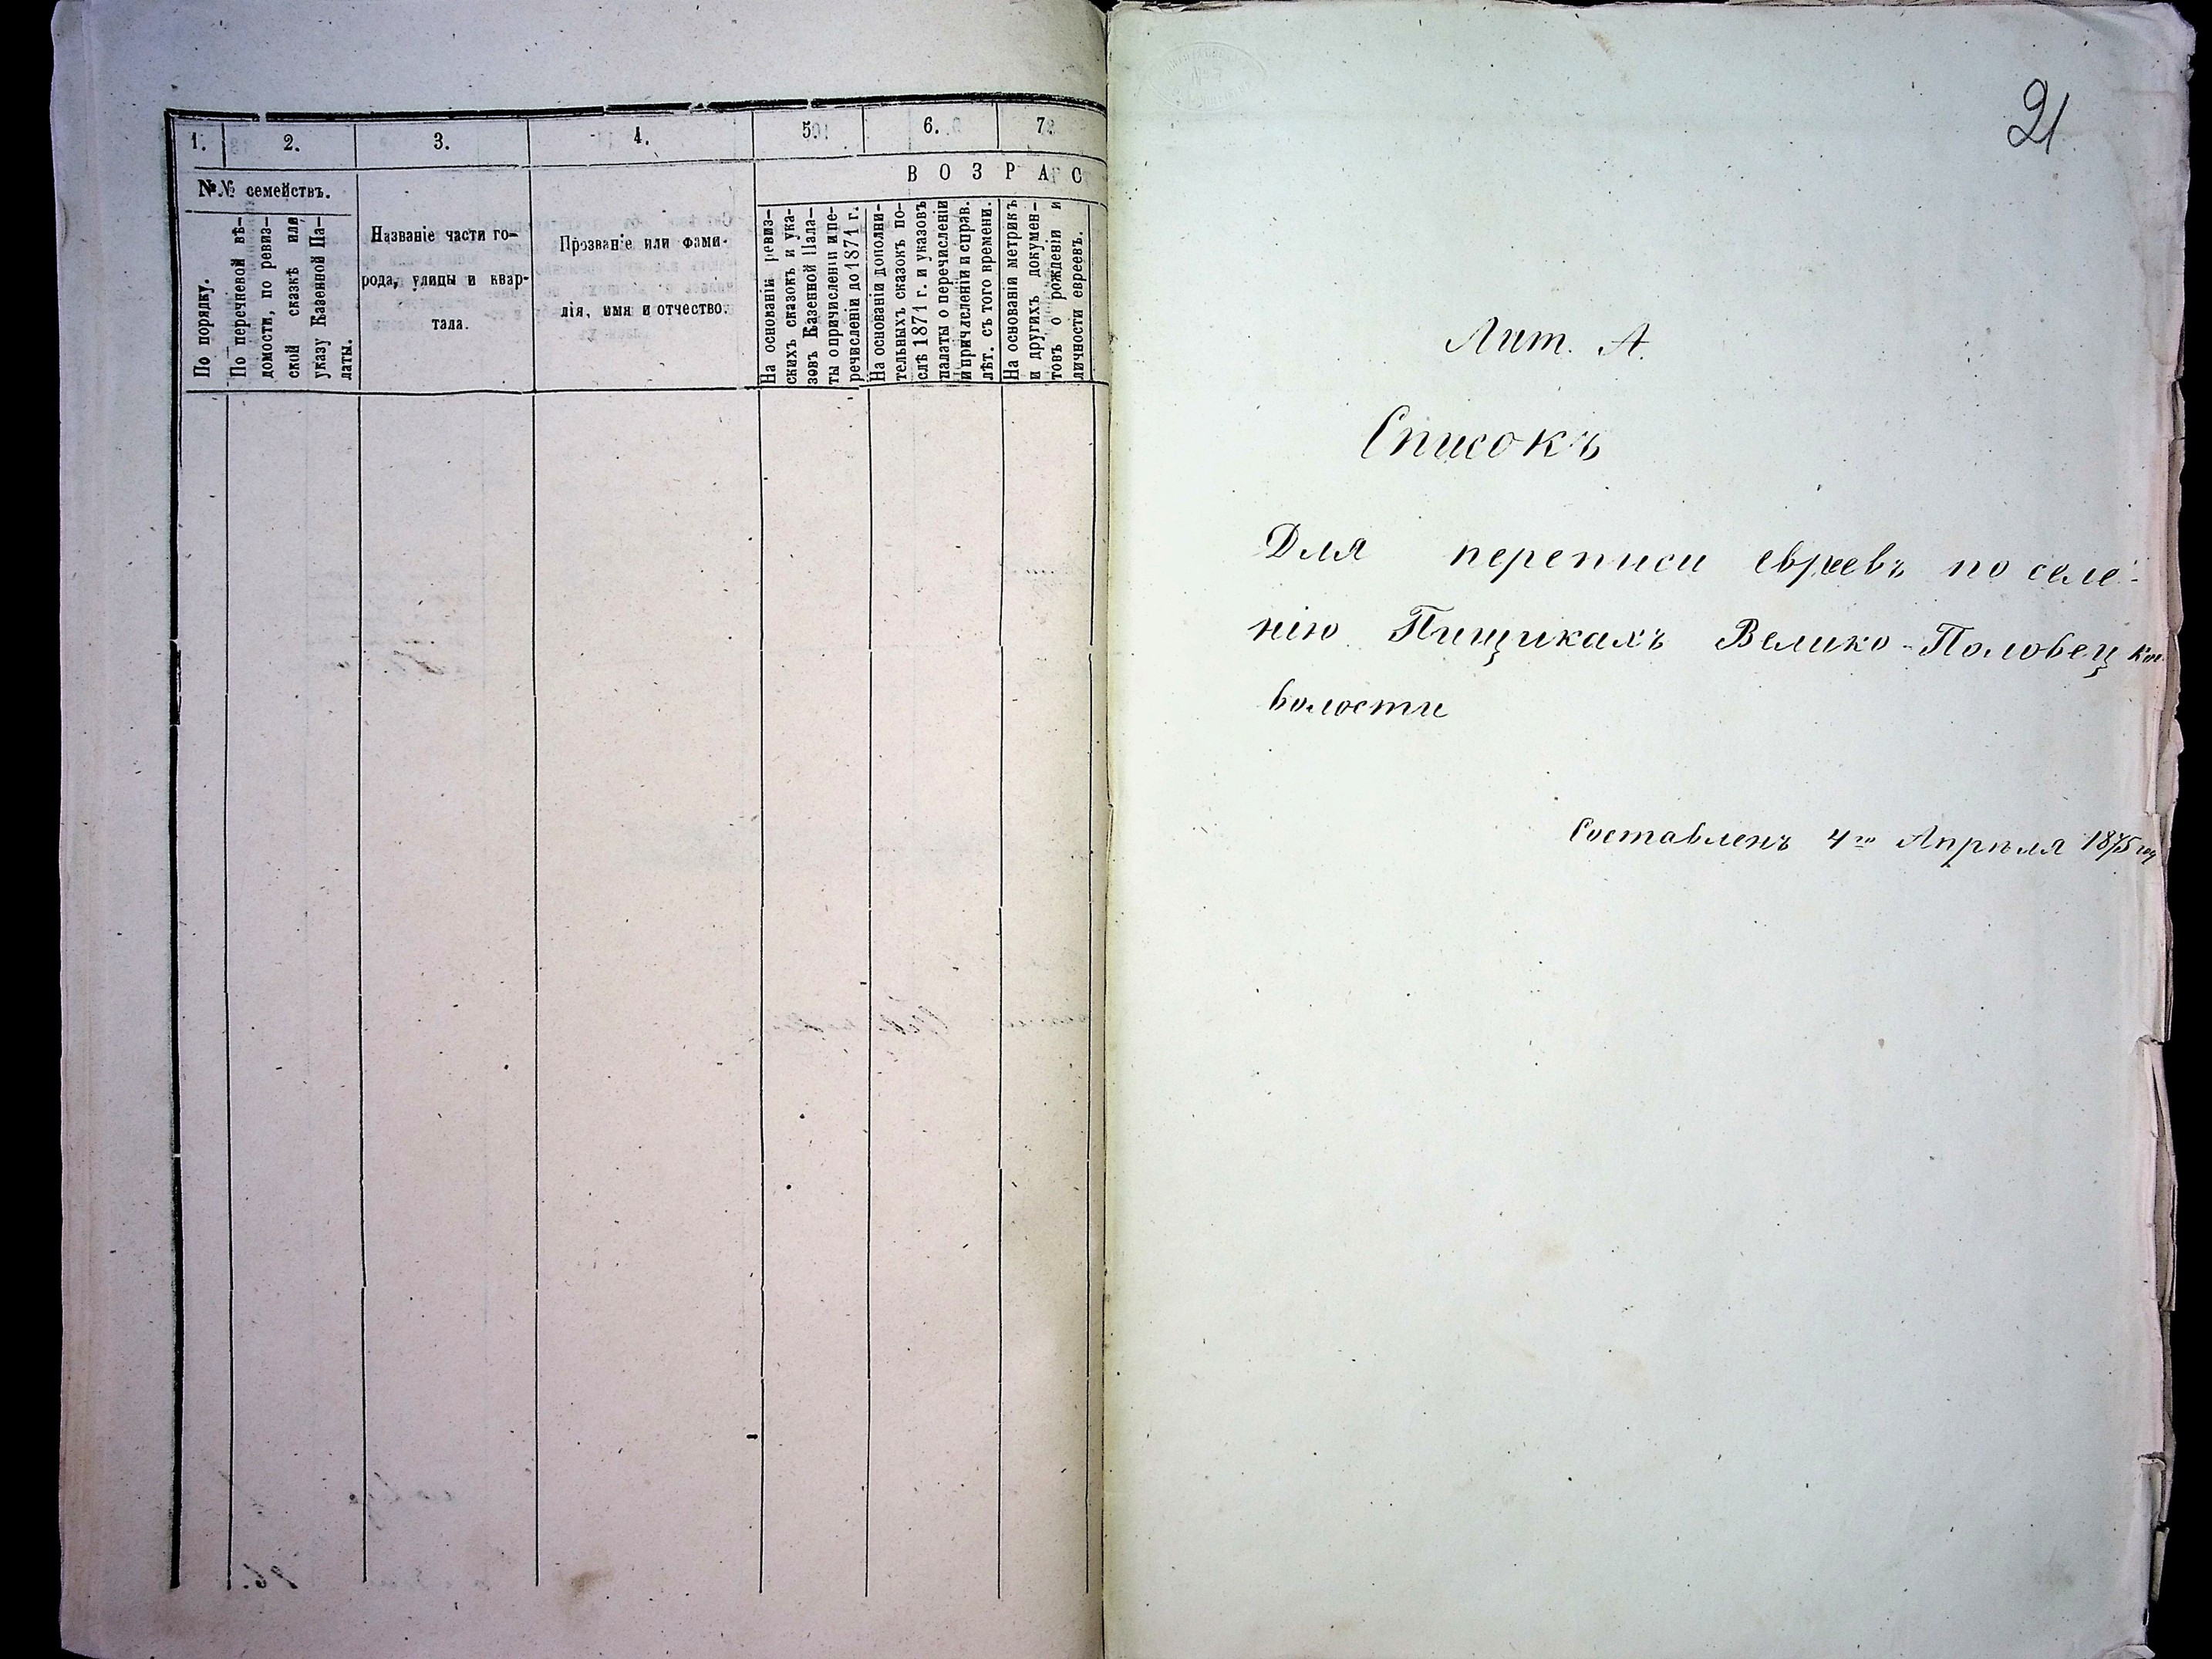 1. 2. 3. 4. 5. 6. 7.
ВОЗРАС
№№ семействъ.
По порядку.
По перечневой вѣ-
домости, по ревиз-
ской сказкѣ или
указу Казенной Па-
латы.
Названіе части го-
рода, улицы и квар-
тала.
Прозваніе или фами-
лія, имя и отчество.
На основаніи ревиз-
скихъ сказокъ и ука-
зовъ Казенной Пала-
ты о причисленіи и пе-
речисленіи до 1871 г.
На основаніи дополни-
тельныхъ сказокъ по-
слѣ 1871 г. и указовъ
палаты о перечисленіи
и причисленіи и справ.
лѣт. съ того времени.
На основаніи метрикъ
и другихъ докумен-
товъ о рожденіи и
личности евреевъ.
21
Лит. А.
Списокъ
Для переписи евреевъ по селе-
нію Пищикахъ Велико-Половецкой
волости
Составленъ 4го Апрѣля 1875